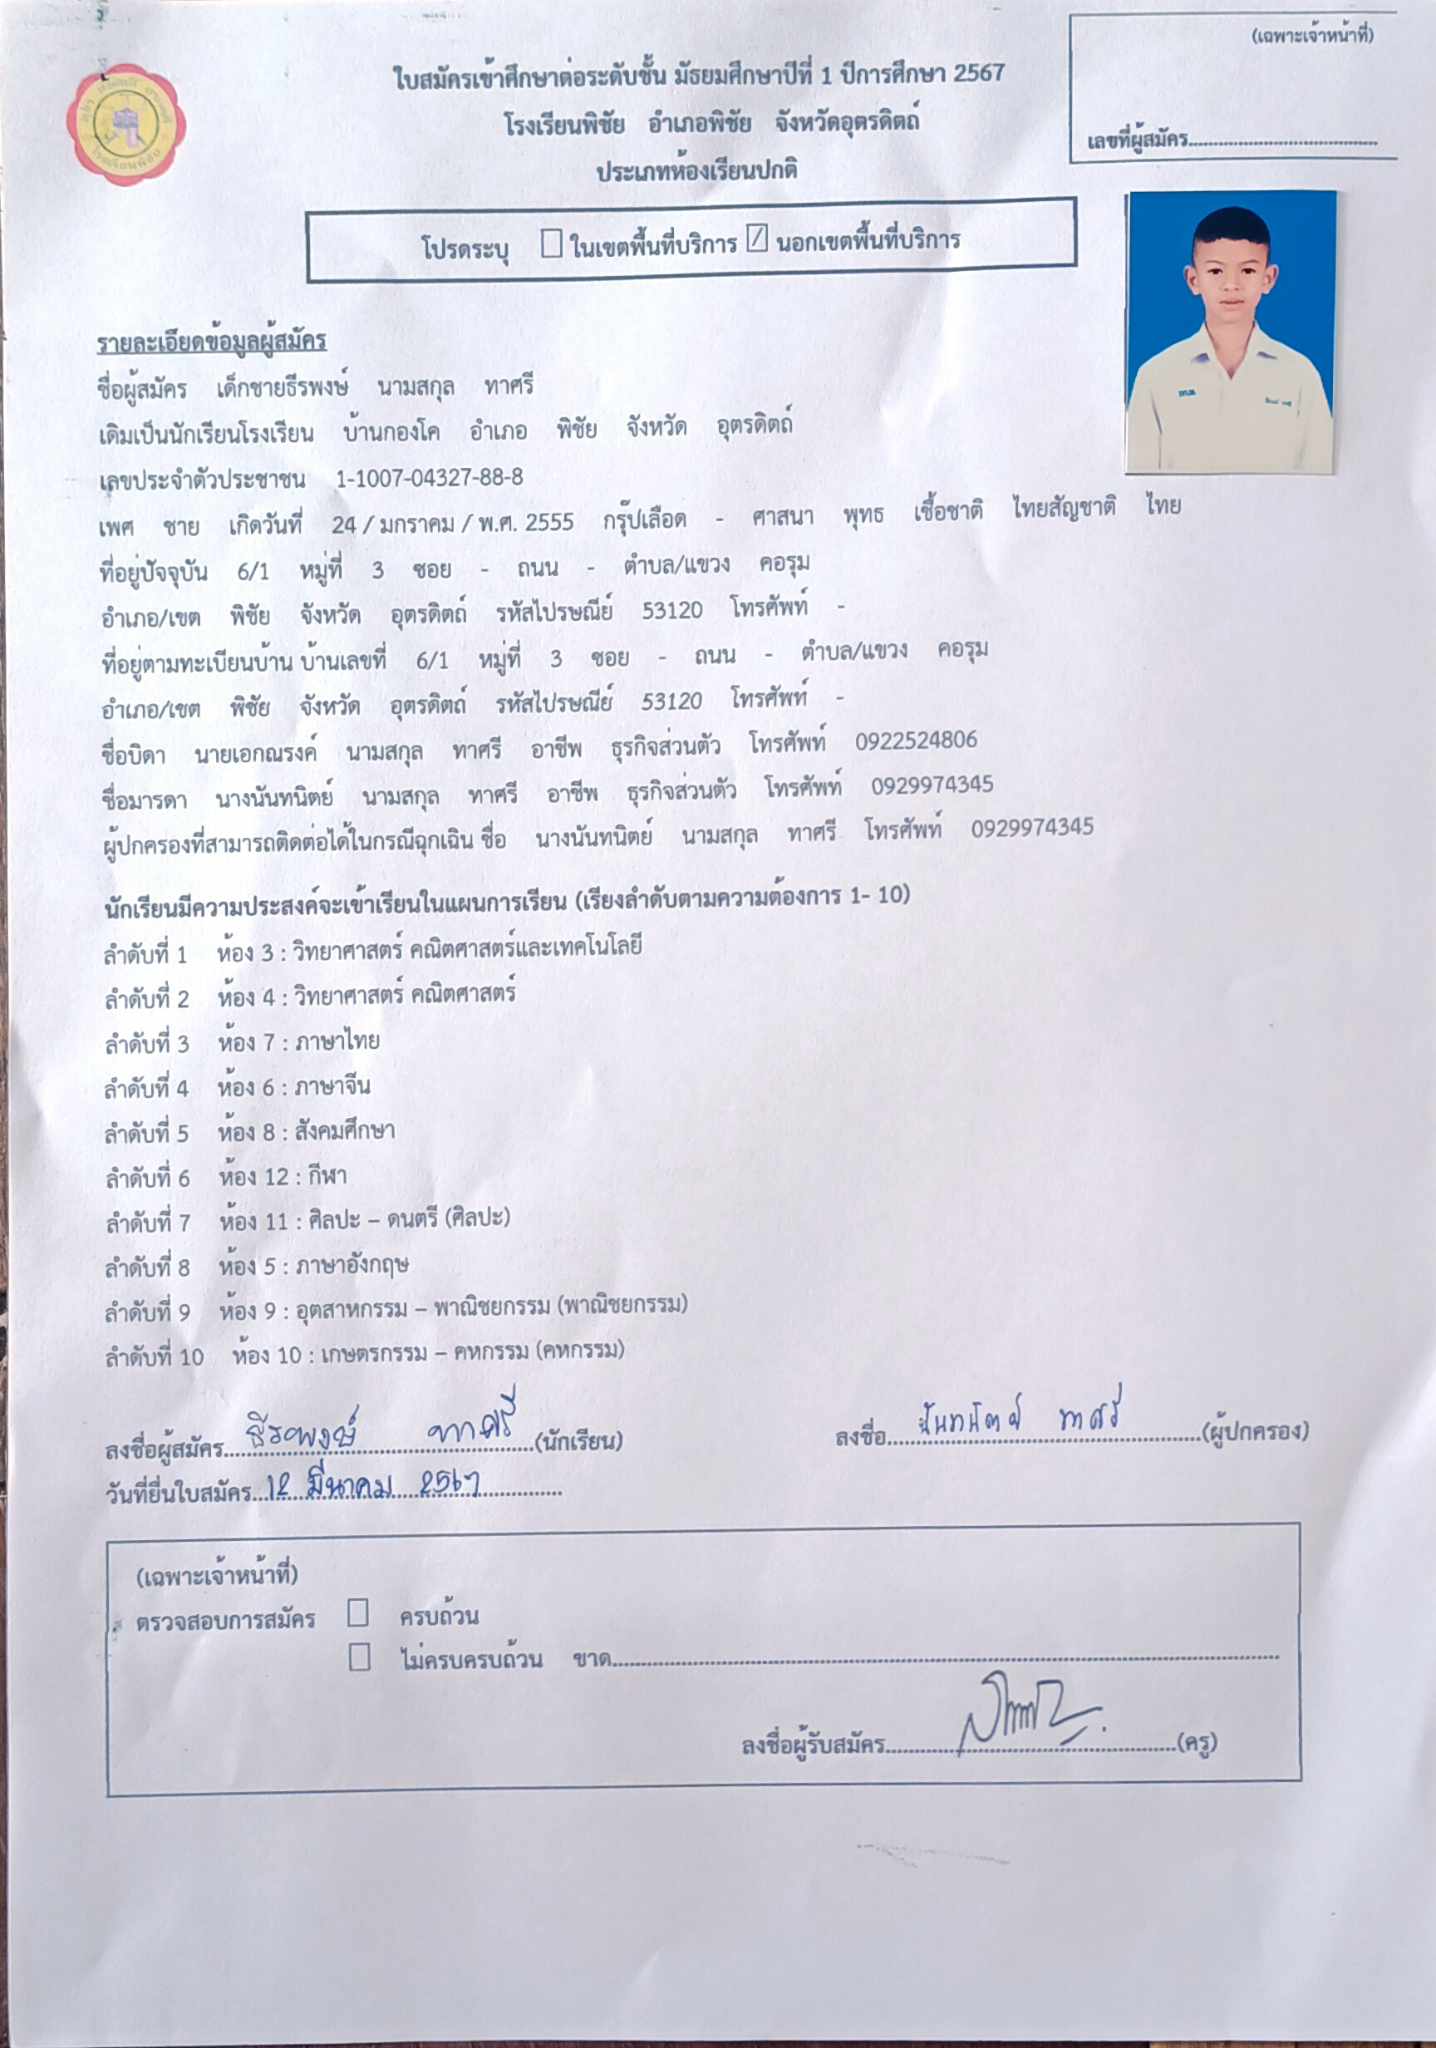 (เฉพาะเจ้าหน้าที่)
เลขที่ผู้สมัคร........................................
ใบสมัครเข้าศึกษาต่อระดับชั้น มัธยมศึกษาปีที่ 1 ปีการศึกษา 2567
โรงเรียนพิชัย อำเภอพิชัย จังหวัดอุตรดิตถ์
ประเภทห้องเรียนปกติ
โปรดระบุ ☐ ในเขตพื้นที่บริการ ☑ นอกเขตพื้นที่บริการ
รายละเอียดข้อมูลผู้สมัคร
ชื่อผู้สมัคร เด็กชายธีรพงษ์ นามสกุล ทาศรี
เดิมเป็นนักเรียนโรงเรียน บ้านกองโค อำเภอ พิชัย จังหวัด อุตรดิตถ์
เลขประจำตัวประชาชน 1-1007-04327-88-8
เพศ ชาย เกิดวันที่ 24 / มกราคม / พ.ศ. 2555 กรุ๊ปเลือด - ศาสนา พุทธ เชื้อชาติ ไทยสัญชาติ ไทย
ที่อยู่ปัจจุบัน 6/1 หมู่ที่ 3 ซอย - ถนน - ตำบล/แขวง คอรุม
อำเภอ/เขต พิชัย จังหวัด อุตรดิตถ์ รหัสไปรษณีย์ 53120 โทรศัพท์ -
ที่อยู่ตามทะเบียนบ้าน บ้านเลขที่ 6/1 หมู่ที่ 3 ซอย - ถนน - ตำบล/แขวง คอรุม
อำเภอ/เขต พิชัย จังหวัด อุตรดิตถ์ รหัสไปรษณีย์ 53120 โทรศัพท์ -
ชื่อบิดา นายเอกณรงค์ นามสกุล ทาศรี อาชีพ ธุรกิจส่วนตัว โทรศัพท์ 0922524806
ชื่อมารดา นางนันทนิตย์ นามสกุล ทาศรี อาชีพ ธุรกิจส่วนตัว โทรศัพท์ 0929974345
ผู้ปกครองที่สามารถติดต่อได้ในกรณีฉุกเฉิน ชื่อ นางนันทนิตย์ นามสกุล ทาศรี โทรศัพท์ 0929974345
นักเรียนมีความประสงค์จะเข้าเรียนในแผนการเรียน (เรียงลำดับตามความต้องการ 1- 10)
ลำดับที่ 1 ห้อง 3 : วิทยาศาสตร์ คณิตศาสตร์และเทคโนโลยี
ลำดับที่ 2 ห้อง 4 : วิทยาศาสตร์ คณิตศาสตร์
ลำดับที่ 3 ห้อง 7 : ภาษาไทย
ลำดับที่ 4 ห้อง 6 : ภาษาจีน
ลำดับที่ 5 ห้อง 8 : สังคมศึกษา
ลำดับที่ 6 ห้อง 12 : กีฬา
ลำดับที่ 7 ห้อง 11 : ศิลปะ – ดนตรี (ศิลปะ)
ลำดับที่ 8 ห้อง 5 : ภาษาอังกฤษ
ลำดับที่ 9 ห้อง 9 : อุตสาหกรรม – พาณิชยกรรม (พาณิชยกรรม)
ลำดับที่ 10 ห้อง 10 : เกษตรกรรม – คหกรรม (คหกรรม)
ลงชื่อผู้สมัคร ธีรพงษ์ ทาศรี (นักเรียน) ลงชื่อ นันทนิตย์ ทาศรี (ผู้ปกครอง)
วันที่ยื่นใบสมัคร 12 มีนาคม 2567
(เฉพาะเจ้าหน้าที่)
ตรวจสอบการสมัคร ☐ ครบถ้วน
☐ ไม่ครบครบถ้วน ขาด........................................
ลงชื่อผู้รับสมัคร........................................(ครู)